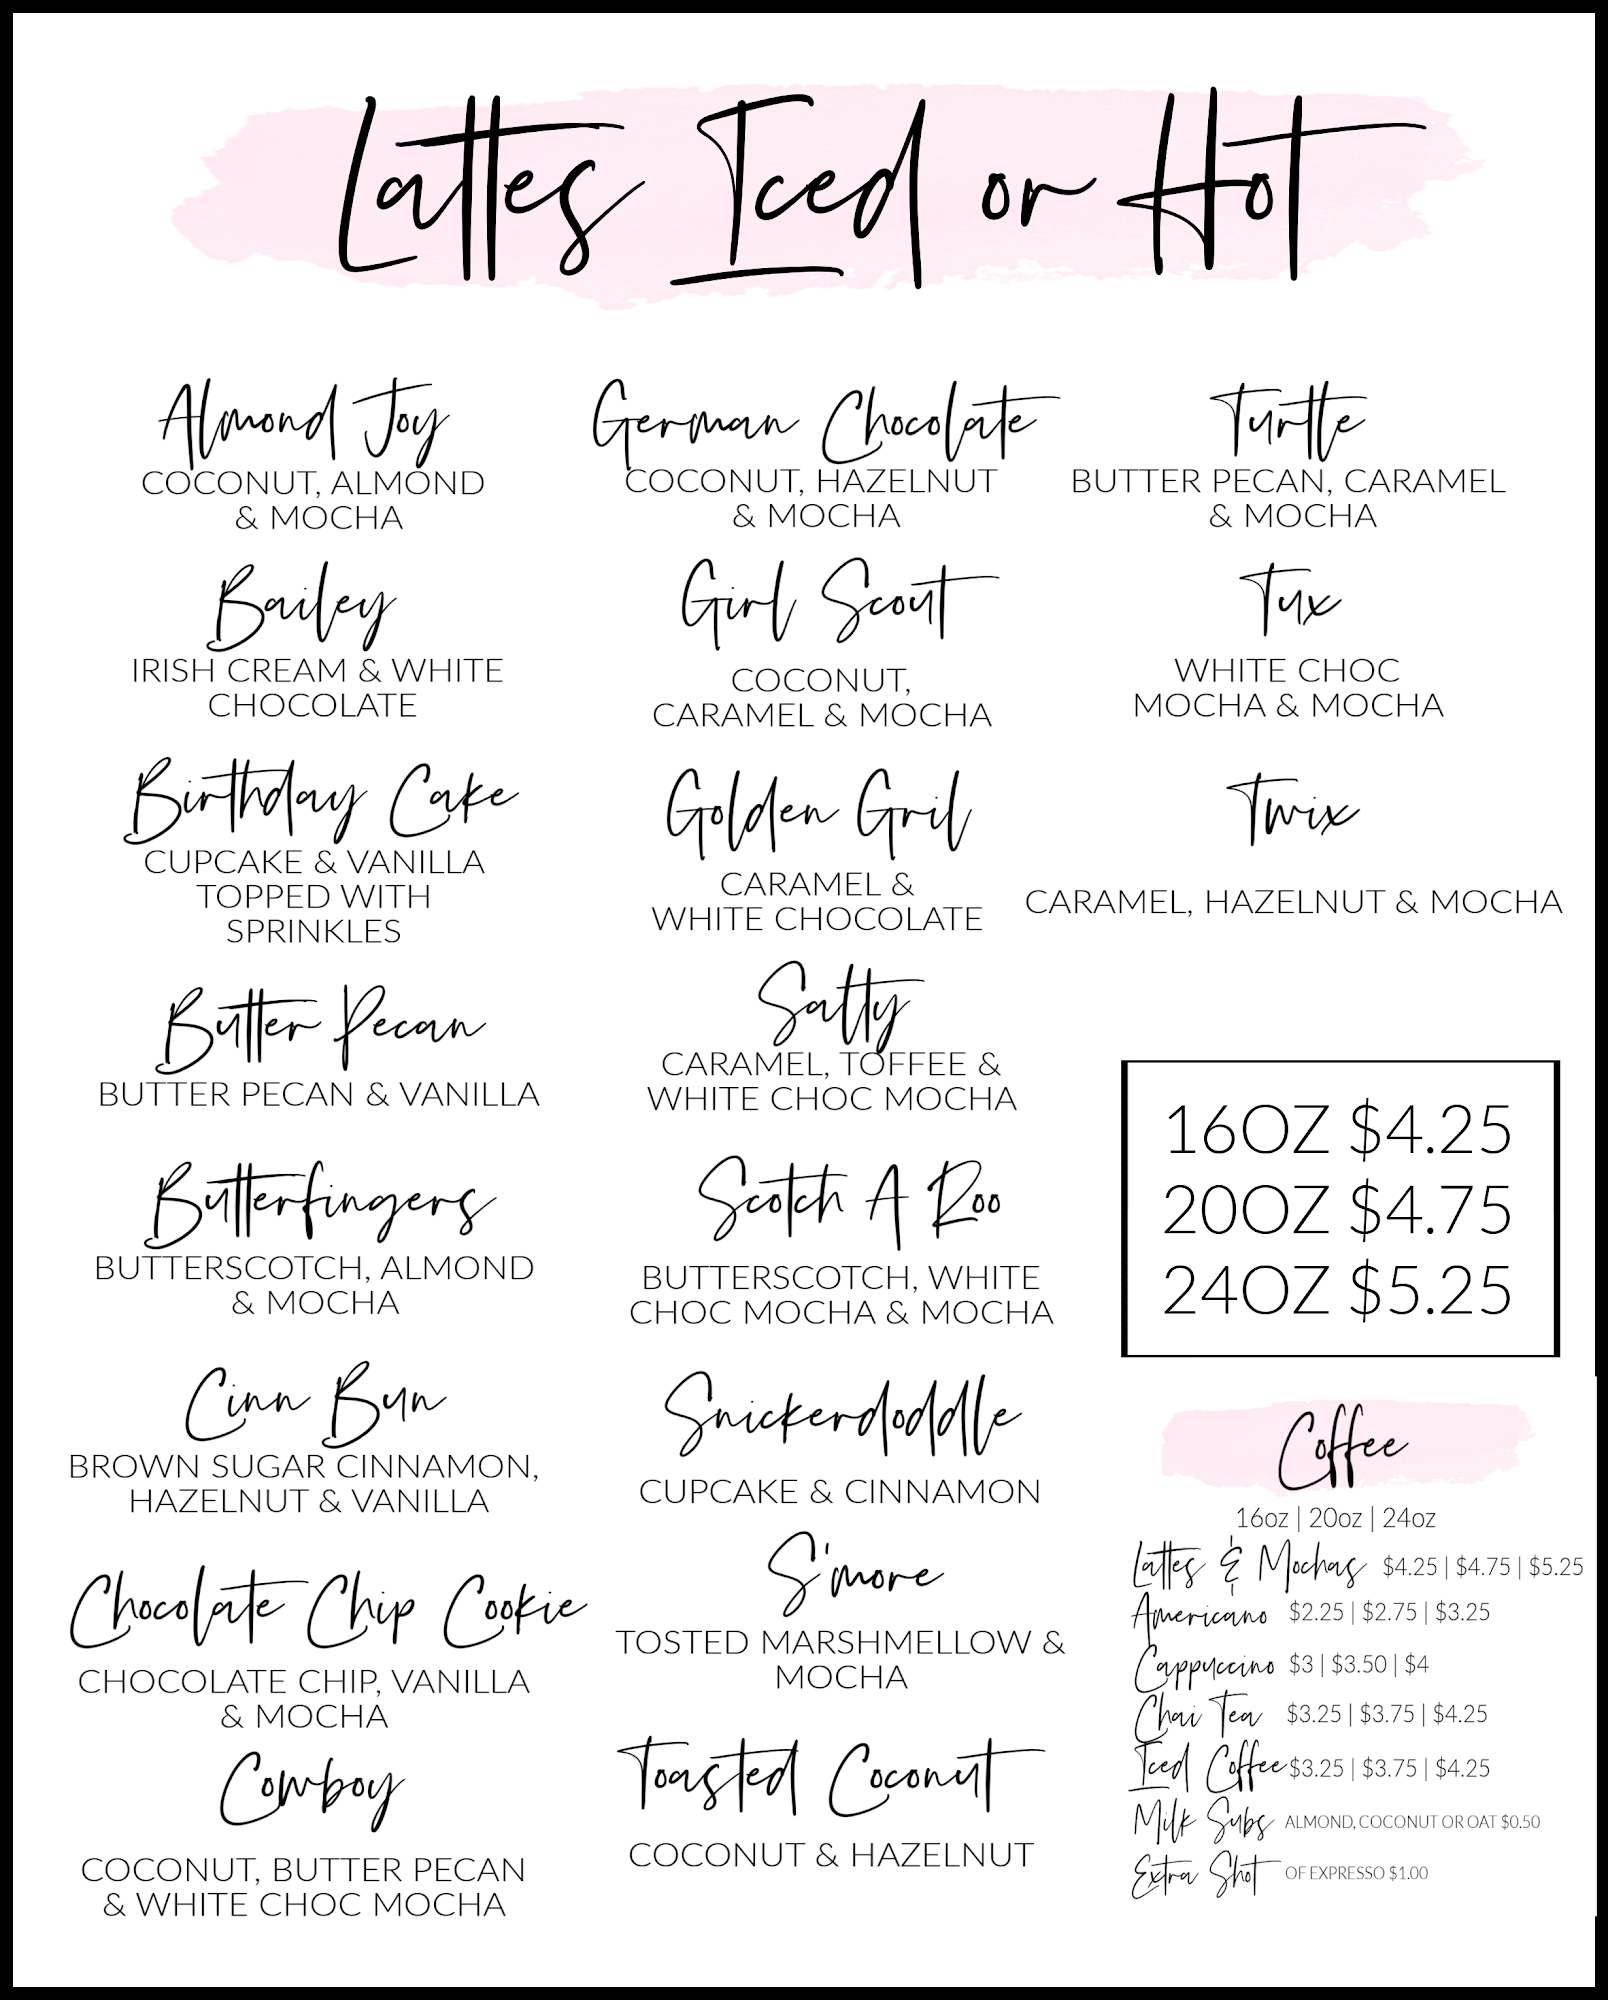 Lattes Iced or Hot
Almond Joy
COCONUT, ALMOND
& MOCHA
Bailey
IRISH CREAM & WHITE
CHOCOLATE
Birthday Cake
CUPCAKE & VANILLA
TOPPED WITH
SPRINKLES
Butter Pecan
BUTTER PECAN & VANILLA
Butterfingers
BUTTERSCOTCH, ALMOND
& MOCHA
Cinn Bun
BROWN SUGAR CINNAMON,
HAZELNUT & VANILLA
Chocolate Chip Cookie
CHOCOLATE CHIP, VANILLA
& MOCHA
Cowboy
COCONUT, BUTTER PECAN
& WHITE CHOC MOCHA
German Chocolate
COCONUT, HAZELNUT
& MOCHA
Girl Scout
COCONUT,
CARAMEL & MOCHA
Golden Gril
CARAMEL &
WHITE CHOCOLATE
Salty
CARAMEL, TOFFEE &
WHITE CHOC MOCHA
Scotch A Roo
BUTTERSCOTCH, WHITE
CHOC MOCHA & MOCHA
Snickerdoddle
CUPCAKE & CINNAMON
S'more
TOSTED MARSHMELLOW &
MOCHA
Toasted Coconut
COCONUT & HAZELNUT
Turtle
BUTTER PECAN, CARAMEL
& MOCHA
Tux
WHITE CHOC
MOCHA & MOCHA
Twix
CARAMEL, HAZELNUT & MOCHA
16OZ $4.25
20OZ $4.75
24OZ $5.25
Coffee
16oz | 20oz | 24oz
Lattes & Mochas $4.25 | $4.75 | $5.25
Americano $2.25 | $2.75 | $3.25
Cappuccino $3 | $3.50 | $4
Chai Tea $3.25 | $3.75 | $4.25
Iced Coffee $3.25 | $3.75 | $4.25
Milk Subs ALMOND, COCONUT OR OAT $0.50
Extra Shot OF EXPRESSO $1.00